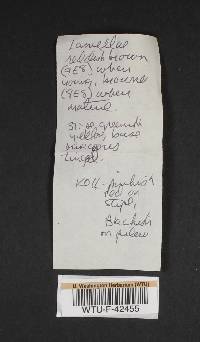 Lamellae
reddish brown
(9E8) when
young, brown
(9E8) when
mature.
greenish
yellow, base
KOH - pinkish
red on
stipe,
Blackish
on pileus
U. Washington Herbarium (WTU)
WTU-F-42455